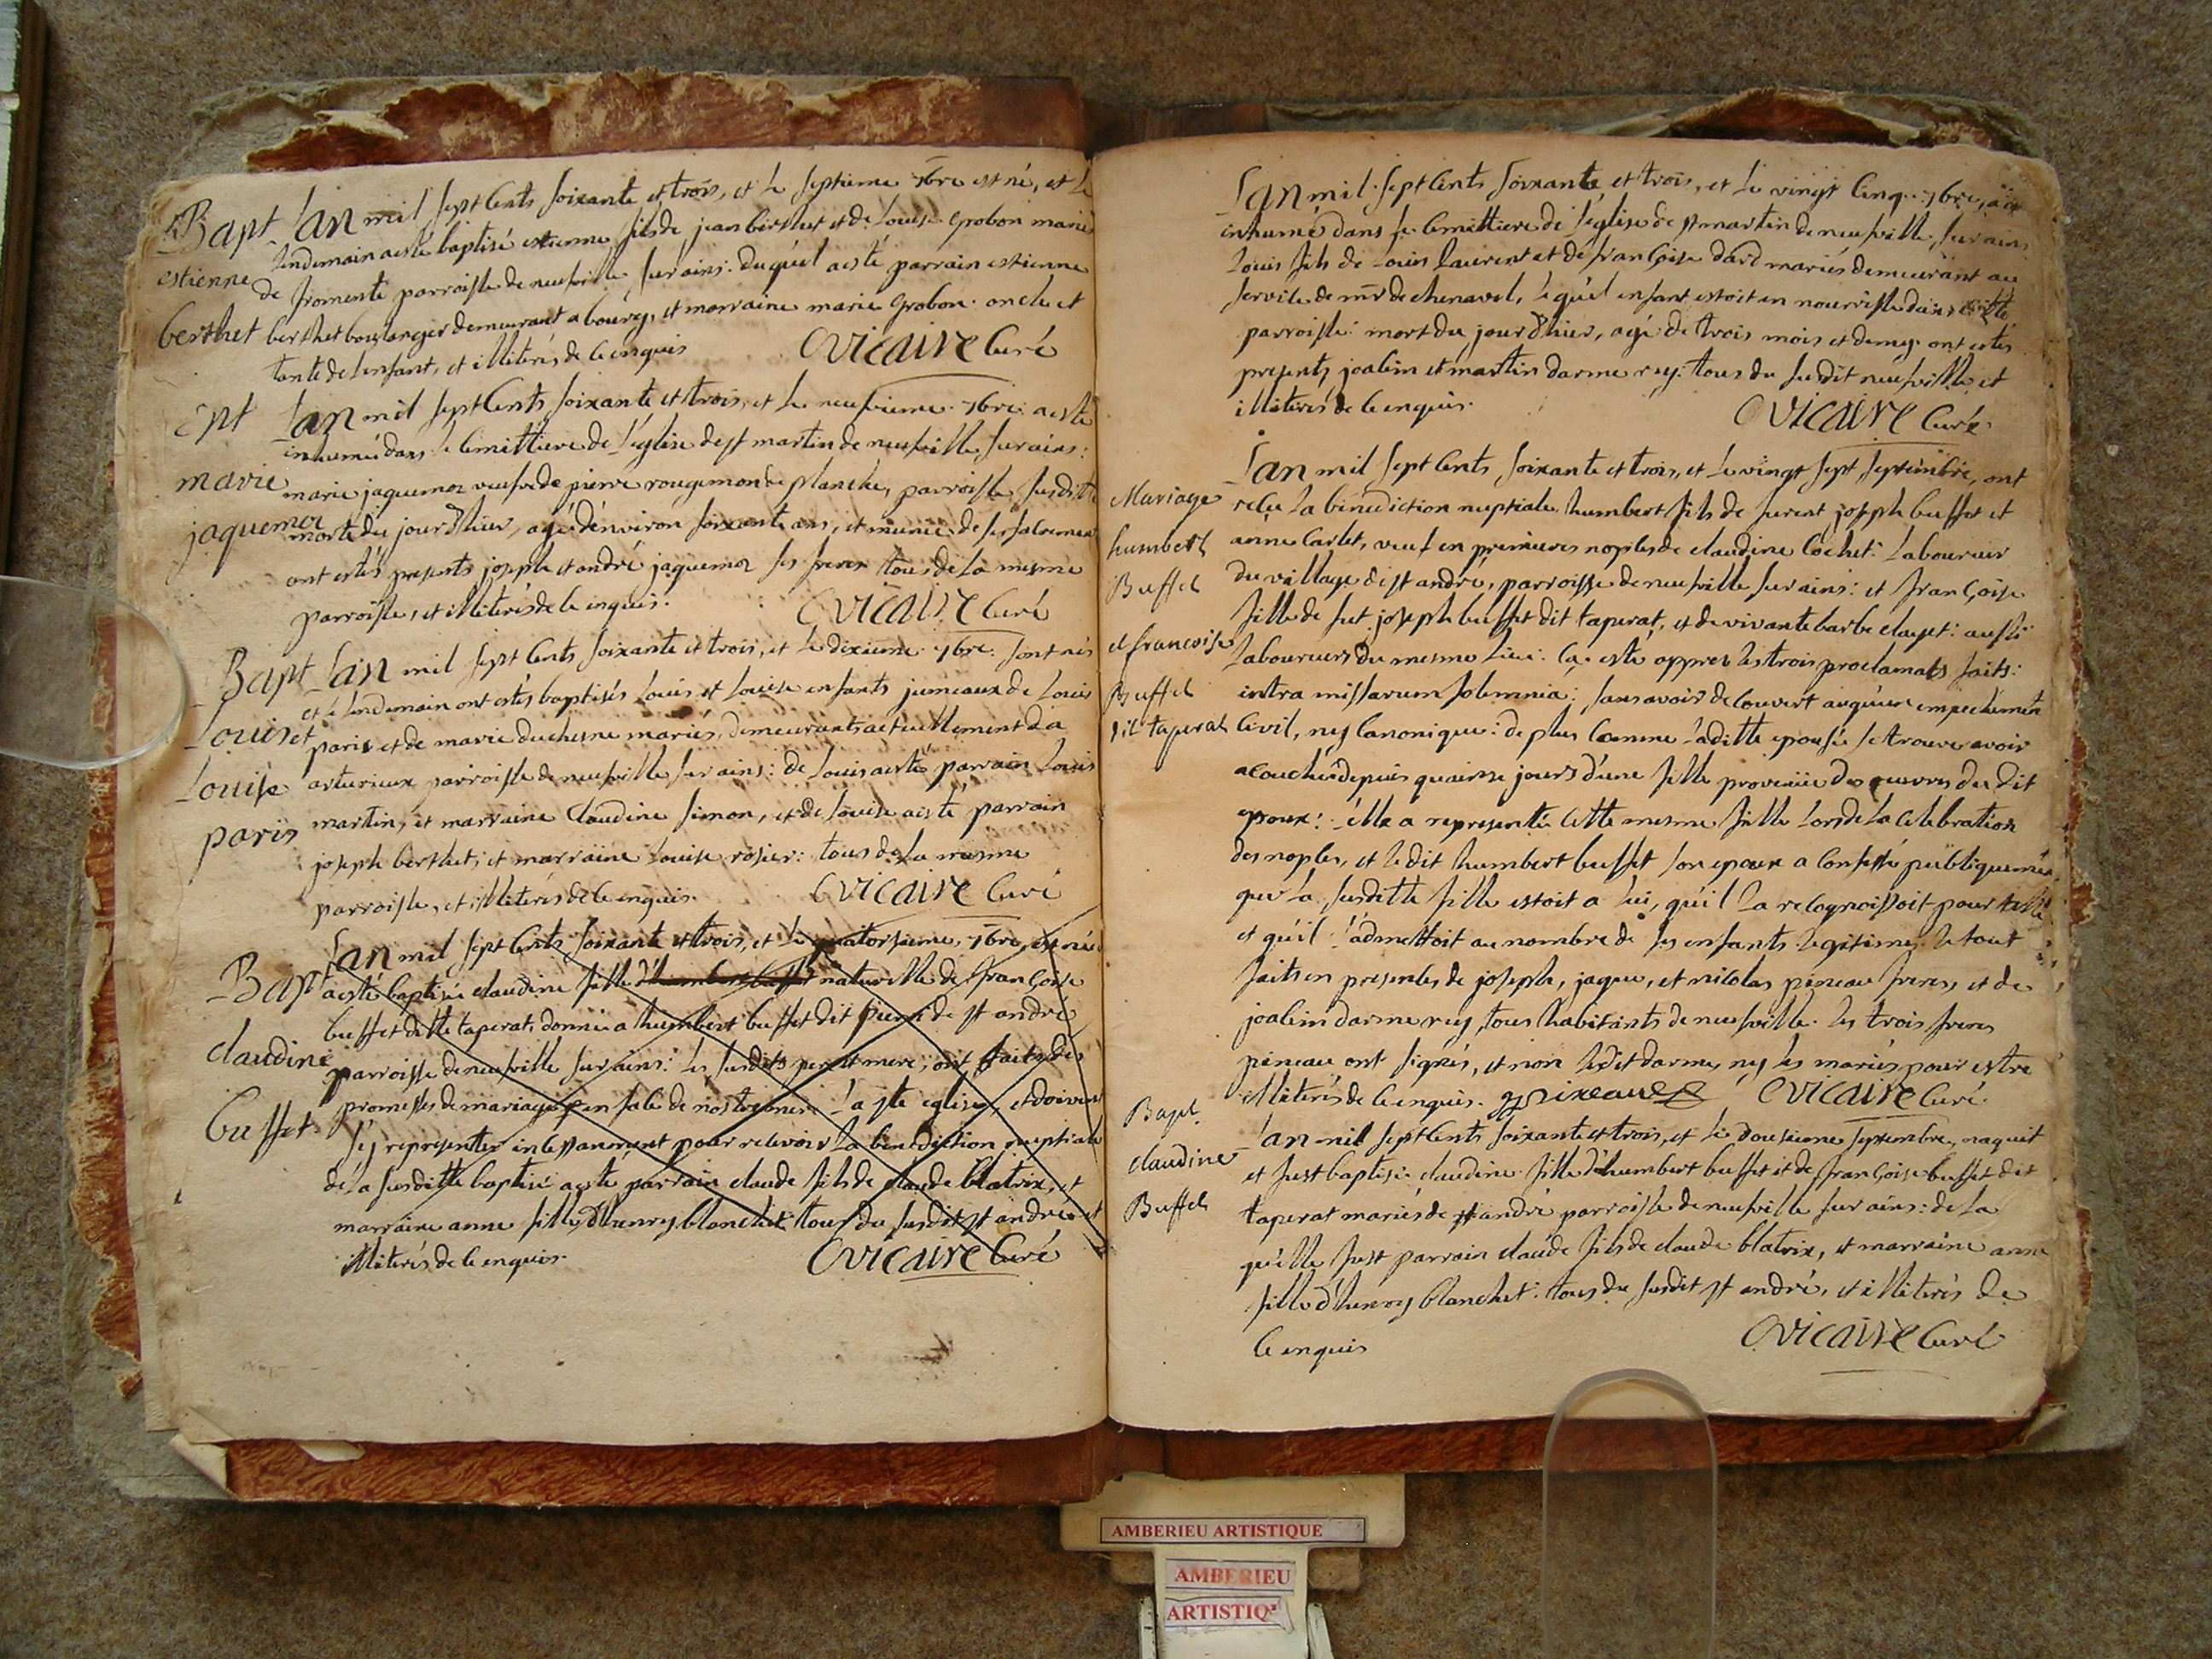 Bapt
estienne
berthet
Lan mil sept Cents soixante et trois, et le septieme 7bre est né, et le
lendemain a esté baptisé estienne fils de jean berthet et de Louise Grobon mariés
de fromente parroisse de neufville sur ains: duquel a esté parrain estienne
berthet boulanger demeurant a bourg, et marraine marie Grobon oncle et
tante de lenfant, et illiterés de ce enquis
Ovicaire Curé
marie
jaquemoz
Lan mil sept Cents soixante et trois, et le neufvieme 7bre a esté
inhumée dans le Cimittiere de l'église de st martin de neufville sur ains:
marie jaquemoz veufve de pierre rougemon de planche, parroisse susditte
morte du jour d'hier, agée d'environ soixante ans, et munie de ses sacremens
ont estés presents joseph et andré jaquemoz ses freres tous de la mesme
parroisse, et illiterés de ce enquis.
Ovicaire Curé
Bapt
Louis et
Louise
paris
Lan mil sept Cents soixante et trois, et le dixieme 7bre sont nés
et le lendemain ont estés baptisés Louis et Louise enfants jumeaux de Louis
paris et de marie duchesne mariés demeurants actuellement a
arturieux parroisse de neufville sur ains: de Louis a esté parrain Louis
martin, et marraine Claudine simon, et de Louise a esté parrain
joseph berthet, et marraine Louise rosier: tous de la mesme
parroisse, et illiterés de ce enquis.
Ovicaire Curé
Bapt
claudine
buffet
Lan mil sept Cents soixante et trois, et le quatorsieme 7bre, est née
a esté baptisée claudine fille naturelle de françoise
buffet ditte taperat, donnée a humbert buffet dit de st andré
parroisse de neufville sur ains: les susdits pere et mere, ont faits des
promesses de mariage en face de nostre mere la ste eglise, et doivent
s'y representer incessamment pour recevoir la benediction nuptiale
de la susditte baptisé a esté parrain claude fils de claude blatrix, et
marraine anne fille d'henry blanchet: tous du susdit st andré et
illiterés de ce enquis.
Ovicaire Curé
Lan mil sept Cents soixante et trois, et le vingt Cinq 7bre, a é
inhumé dans le Cimittiere de l'église de st martin de neufville sur ains
Louis fils de Louis Laurent et de françoise dard mariés demeurant au
service de mr de chenavel, lequel enfant estoit en nourrisse dans cette
parroisse: mort du jour d'hier, agé de trois mois et demy: ont estés
presents joachim et martin darmerey: tous du susdit neufville et
illiterés de ce enquis.
Ovicaire Curé
Mariage
humbert
Buffet
et francoise
Buffet
dit taperat
Lan mil sept Cents, soixante et trois, et le vingt sept septembre, ont
reçu la bénédiction nuptiale humbert fils de furent joseph buffet et
anne Carlet, veuf en premieres nopces de claudine Cochet: Laboureur
du village de st andré, parroisse de neufville sur ains: et françoise
fille de fut joseph buffet dit taperat, et de vivante barbe clayet: aussi
Laboureurs du mesme lieu: Ça esté apprez les trois proclamats faits:
intra missarum solemnia; sans avoir decouvert auqu'un empechement
Civil, ny Canonique: de plus Comme laditte epousée se trouve avoir
acouchés depuis quainse jours d'une fille provenüe des œuvres du dit
epoux: elle a representé cette mesme fille lors de la celebration
des nopces, et le dit humbert buffet son epoux a confessé publiquement
que la susditte fille estoit a lui, qu'il la recognoissoit pour telle
et qu'il l'admettoit au nombre de ses enfants legitimes: le tout
faits en presence de joseph, jaque, et nicolas pineau freres, et de
joachim darmerey, tous habitants de neufville. les trois freres
pineau ont signés, et non ledit darme, ny les mariés pour estre
illiterés de ce enquis.
Ovicaire Curé
Bapt.
claudine
Buffet
Lan mil sept Cents soixante et trois, et le dousieme septembre, naquit
et fust baptisée claudine fille d'humbert buffet et de françoise buffet dit
taperat mariés de st andré parroisse de neufville sur ains: de la
quelle fust parrain claude fils de claude blatrix, et marraine anne
fille d'henry blanchet: tous du susdit st andré, et illiterés de
ce enquis
Ovicaire Curé
AMBERIEU ARTISTIQUE
AMBERIEU
ARTISTIQ